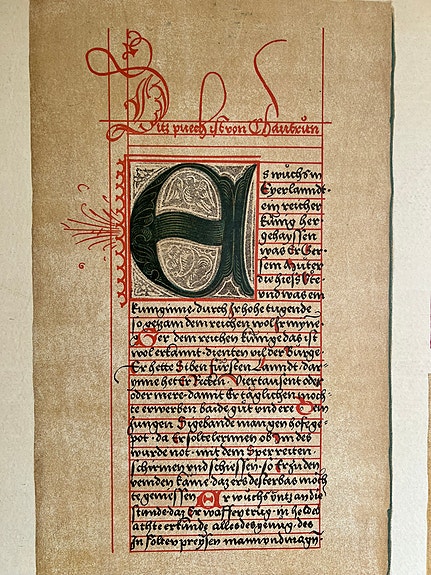 Ditz puech ist von Chautrun
ES wůchs in
Eyerlanndt.
ein reicher
kůnig her
gehayssen
was Er Ger.
sein Muter
die hiess Ŭte.
vnd was ein
kuniginne. durch Ir hohe tugende
so gezam dem reichen wol Ir mÿnne.
Ger dem reichen kůnige das ist
wol erkant. dienten vil der Burge
Er hette Siben fürsten Lanndt. dar
ynne het Er Recken Viertausent oder
oder mere. damit Er tägelichen moch
te erwerben baide gůt vnd ere. Dem
jungen Sigebande man gen hofe ge
pot. da Er solte lernen ob Im des
wurde not. mit dem Sper reiten.
schirmen vnd schiessen. so Er zu den
veinden käme. daz er des dester bas moch
te geniessen. Er wůchs vntz an die
stunde. daz Er waffen trug. in heldes
achte erkunde alles des genůg. des
In solten preysen mann vnd magn